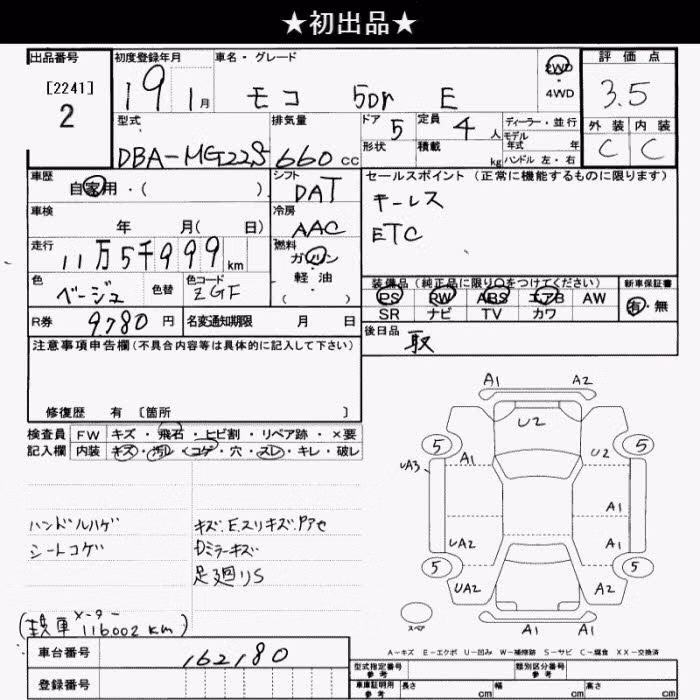 ★初出品★
出品番号 初度登録年月 車名・グレード 2WD 評価点
[2241] 19 1月 モコ 5Dr E 4WD 3.5
2
型式 排気量 ドア 5 定員 4人 ディーラー・並行 外装 内装
DBA-MG22S 660cc 形状 積載 kg モデル年式 年 C C
ハンドル 左・右
車歴 自家用・( ) シフト DAT セールスポイント (正常に機能するものに限ります)
車検 年 月( 日) 冷房 AAC キーレス
走行 11万5千999km 燃料 ガソリン ETC
軽油
( )
色 ベージュ 色替 色コード ZGF
装備品 (純正品に限り○をつけてください) 新車保証書
PS PW ABS エアB AW 有・無
SR ナビ TV カワ
R券 9780円 名変通知期限 月 日
後日品 取
注意事項申告欄(不具合内容等は具体的に記入して下さい)
修復歴 有 [箇所 ]
検査員 FW キズ・飛石・ヒビ割・リペア跡・×要
記入欄 内装 キズ・汚レ・コゲ・穴・スレ・キレ・破レ
ハンドルハゲ キズ.E.スリキズ.Pアセ
シートコゲ Dミラーキズ
足廻りS
メーター
116002km)
A1 A2
U2
5 5
A1 U2
UA3
A1
UA2 A1
5 5
UA2 A2
スペア A1 A1
A-キズ E-エクボ U-凹み W-補修跡 S-サビ C-腐食 XX-交換済
車台番号 162180
登録番号
型式指定番号 参考 類別区分番号 参考
車庫証明用 参考 長さ cm 幅 cm 高さ cm